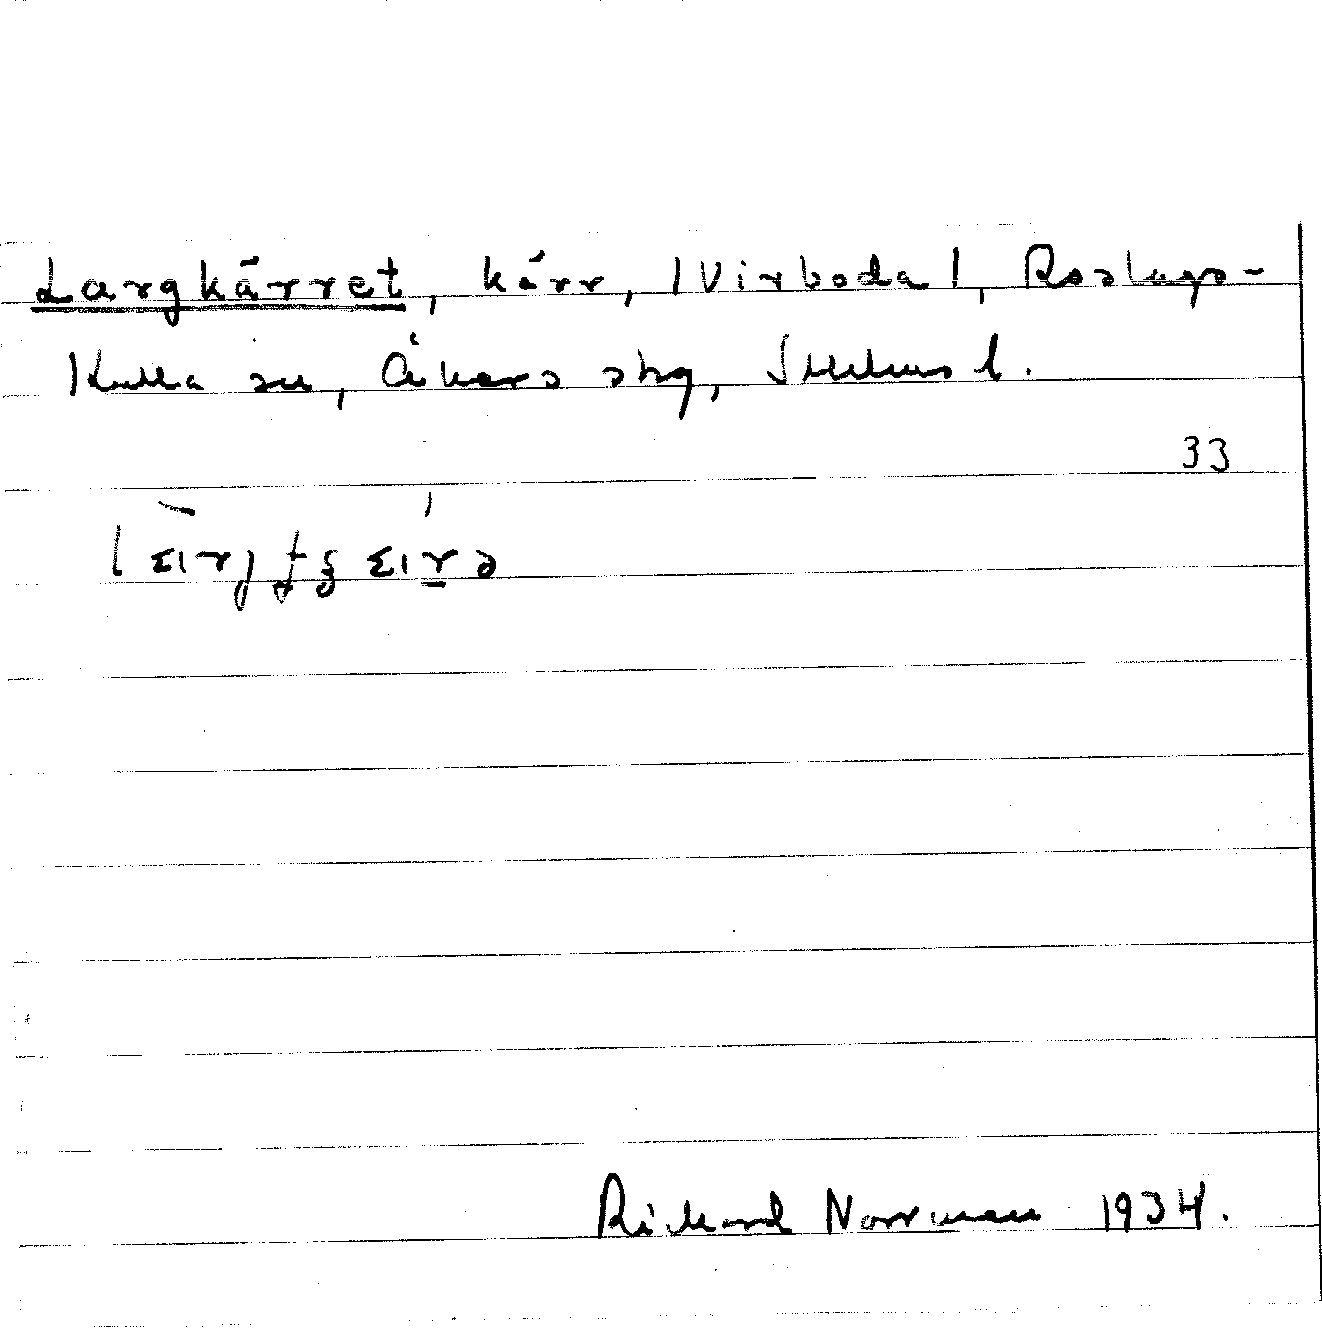 Largkärret, kärr, /Virboda/, Roslags-
Kulla sn, Åkers skg, Sthlms l.
33
Rickard Norrman 1934.